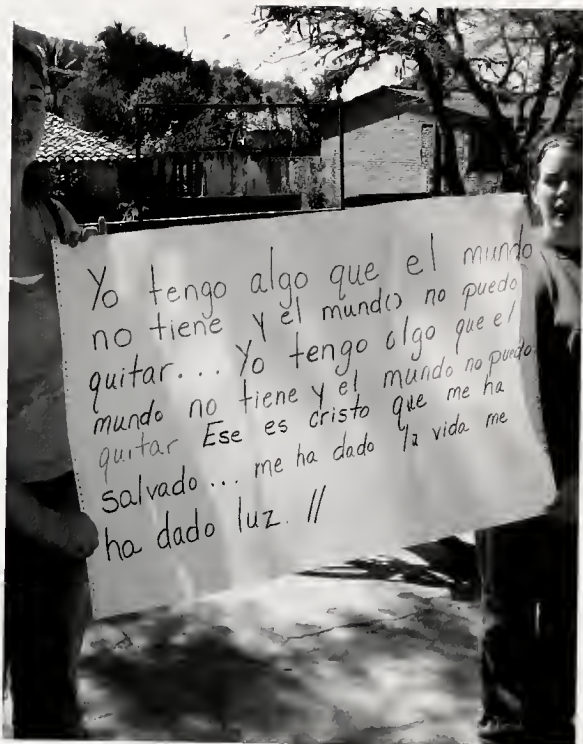 Yo tengo algo que el mundo
no tiene y el mundo no puedo
quitar... Yo tengo algo que el
mundo no tiene y el mundo no puedo
quitar Ese es cristo que me ha
salvado... me ha dado la vida me
ha dado luz. //